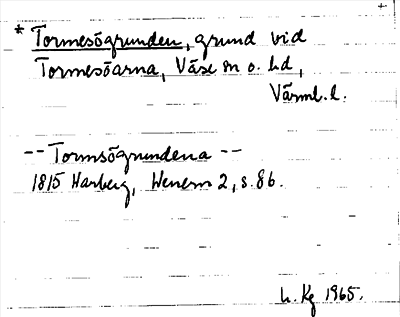 * Tormesögrunden, grund vid
Tormesöarna, Väse sn o. hd,
Värml. l.
-- Tormsögrundena --
1815 Harberg, Wenern 2, s. 86.
L. Kg 1965.